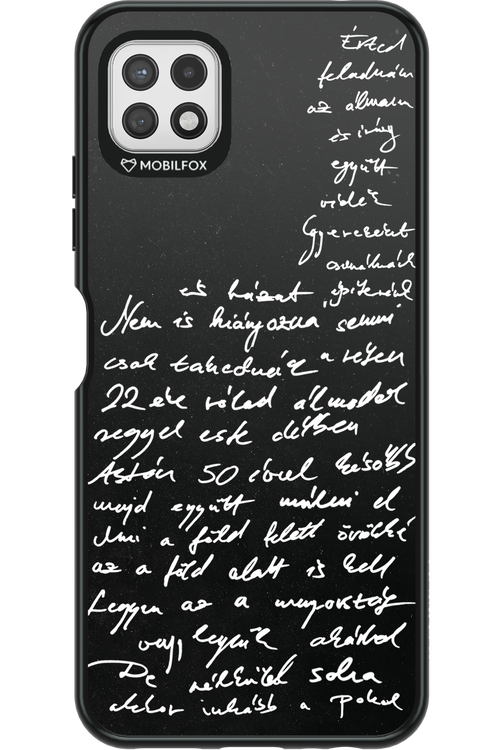 MOBILFOX
Érted
feladnám
az álmam
és így
együtt
vidék
Gyereket
csinálnék
és házat építenék
Nem is hiányozna semmi
csak takednác a részen
22 éve rólad álmodok
reggel este délben
Aztán 50 évvel később
majd együtt múlni el
Ami a föld felett örökké
az a föld alatt is kell
Legyen az a mennyország
vagy legyünk akárhol
De nélküled soha
akkor inkább a pokol